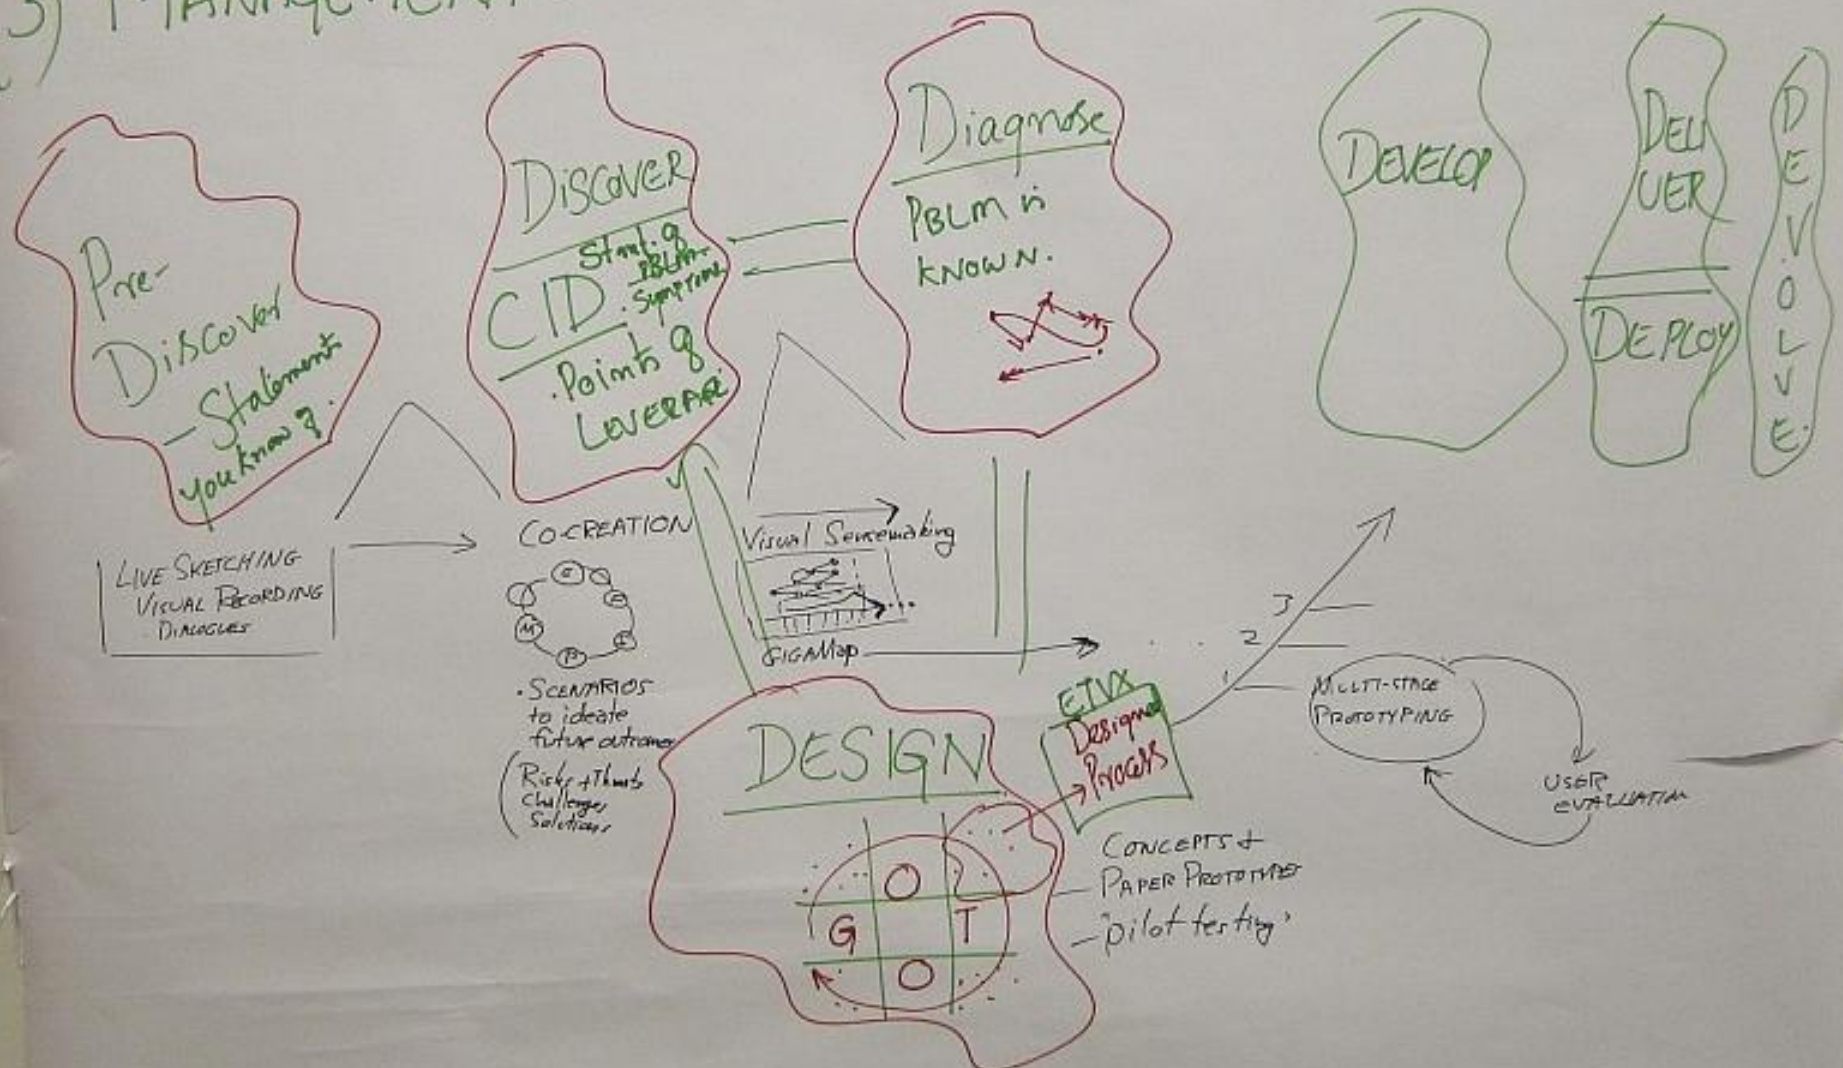 3) MANAGEMENT
Pre-
DISCOVER
- Statements
you know of.
DISCOVER
CID
PBLM
Symptoms
. Points of
LEVERAGE
Diagnose
PBLM is
KNOWN.
DEVELOP
DELI
VER
DEPLOY
DEVOLVE.
LIVE SKETCHING
VISUAL RECORDING
DIALOGUES
CO-CREATION
M
P
. SCENARIOS
to ideate
future outcomes
Risks + Threats
Challenges
Solutions
Visual Sensemaking
GIGAMap
DESIGN
O
G
T
O
ETVX
Designed
Process
CONCEPTS +
PAPER PROTOTYPES
- "pilot testing"
3
2
1
MULTI-STAGE
PROTOTYPING
USER
EVALUATION